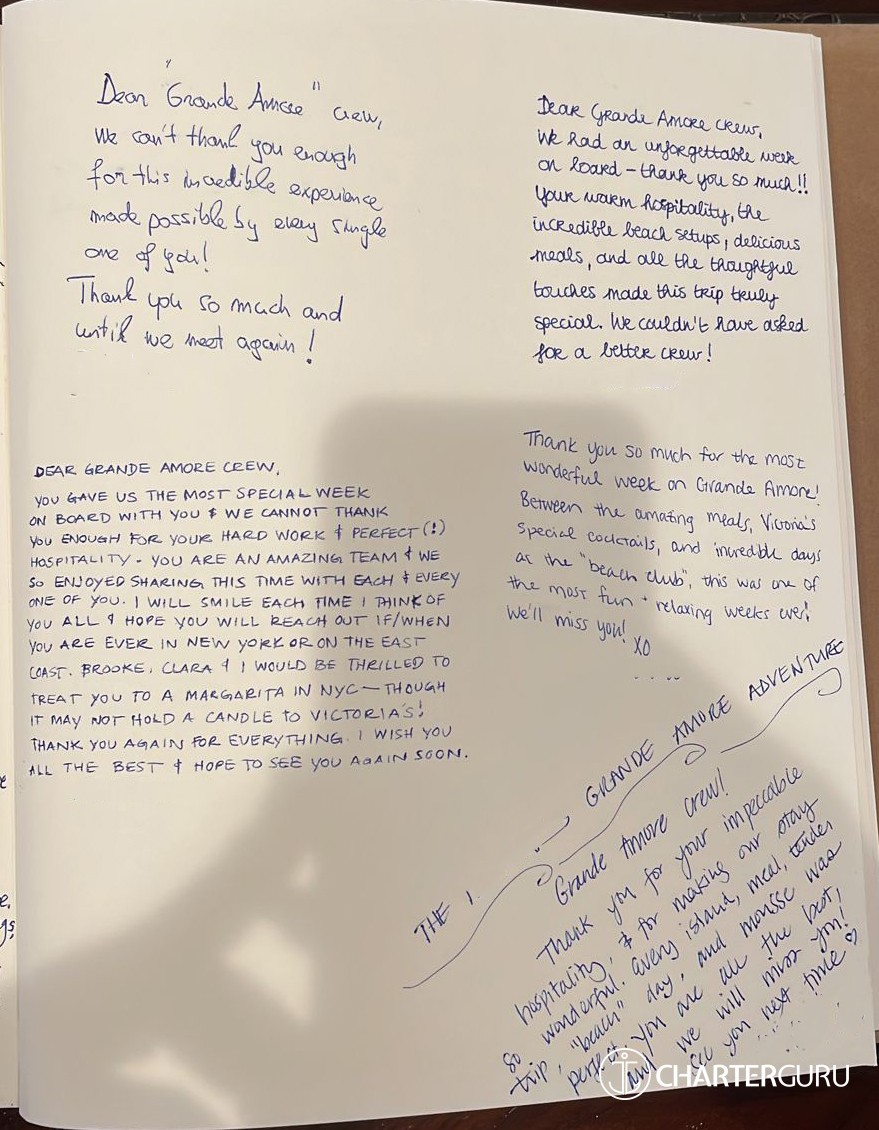 Dear "Grande Amore" crew,
We can't thank you enough
for this incredible experience
made possible by every single
one of you!
Thank you so much and
until we meet again!
Dear Grande Amore crew,
We had an unforgettable week
on board – thank you so much!!
Your warm hospitality, the
incredible beach setups, delicious
meals, and all the thoughtful
touches made this trip truly
special. We couldn't have asked
for a better crew!
DEAR GRANDE AMORE CREW,
YOU GAVE US THE MOST SPECIAL WEEK
ON BOARD WITH YOU & WE CANNOT THANK
YOU ENOUGH FOR YOUR HARD WORK & PERFECT (!)
HOSPITALITY - YOU ARE AN AMAZING TEAM & WE
SO ENJOYED SHARING THIS TIME WITH EACH & EVERY
ONE OF YOU. I WILL SMILE EACH TIME I THINK OF
YOU ALL & HOPE YOU WILL REACH OUT IF/WHEN
YOU ARE EVER IN NEW YORK OR ON THE EAST
COAST. BROOKE, CLARA & I WOULD BE THRILLED TO
TREAT YOU TO A MARGARITA IN NYC — THOUGH
IT MAY NOT HOLD A CANDLE TO VICTORIA'S!
THANK YOU AGAIN FOR EVERYTHING. I WISH YOU
ALL THE BEST & HOPE TO SEE YOU AGAIN SOON.
Thank you so much for the most
wonderful week on Grande Amore!
Between the amazing meals, Victoria's
special cocktails, and incredible days
at the "beach club", this was one of
the most fun + relaxing weeks ever!
We'll miss you!
XO
THE GRANDE AMORE ADVENTURE
Grande Amore crew!
Thank you for your impeccable
hospitality, & for making our stay
so wonderful. Every island, meal, tender
trip, "beach" day, and mousse was
perfect. You are all the best,
and we will miss you!
See you next time ♡
CHARTERGURU